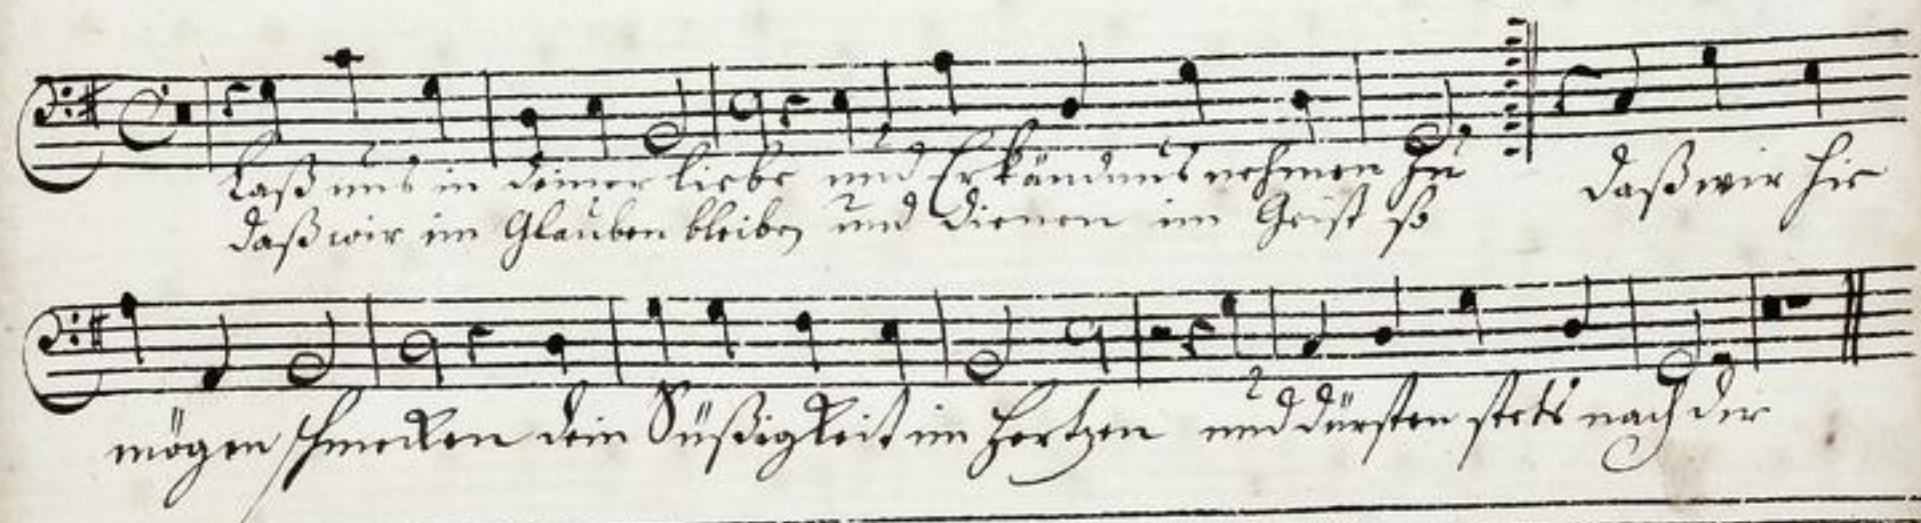 Laß uns in deiner liebe und Erkändnus nehmen zu daß wir hie
daß wir im Glauben bleiben und dienen im Geist so
mögen schmecken dein Süßigkeit im Hertzen und dürsten stets nach dir